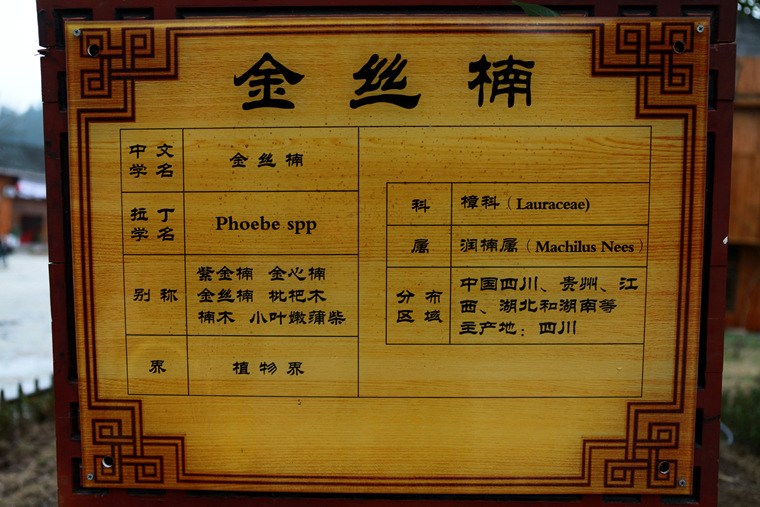 金丝楠
中文
学名
金丝楠
拉丁
学名
Phoebe spp
别称
紫金楠 金心楠
金丝楠 枇杷木
楠木 小叶嫩蒲柴
界
植物界
科
樟科（Lauraceae)
属
润楠属（Machilus Nees）
分布
区域
中国四川、贵州、江
西、湖北和湖南等
主产地：四川